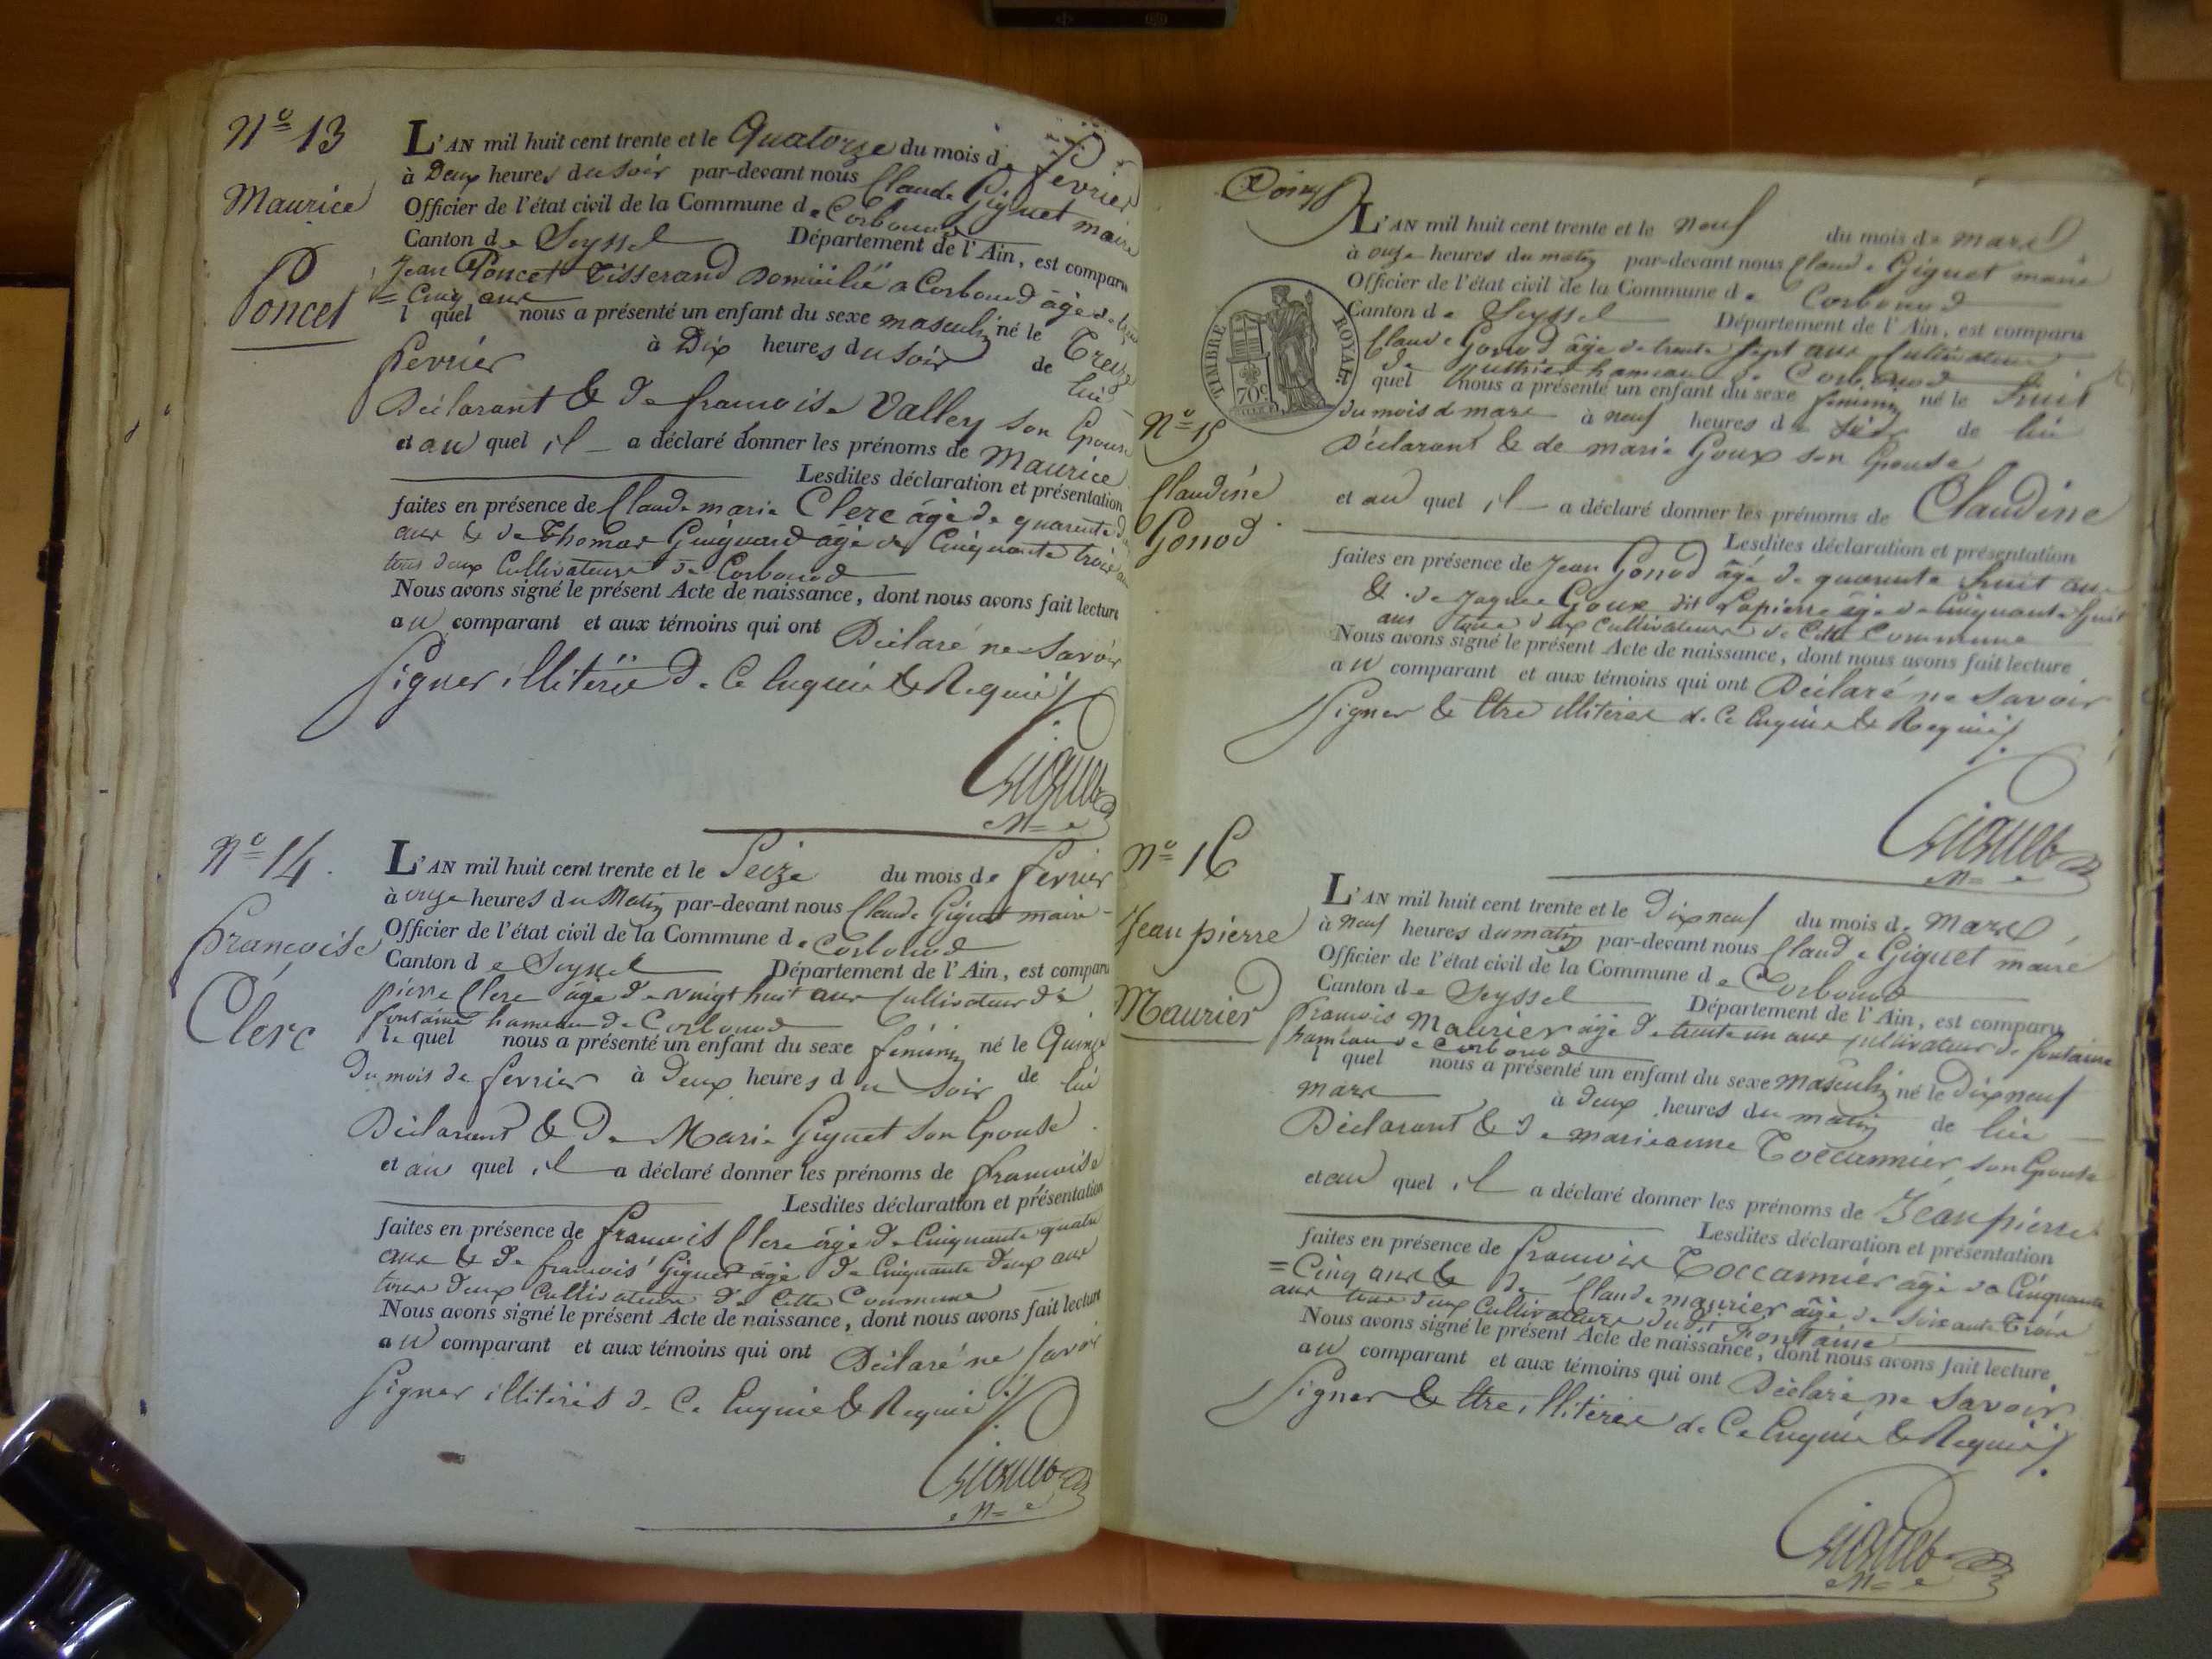 Nº 13
Maurice
Poncet
L'AN mil huit cent trente et le Quatorze du mois de fevrier
à Deux heures du soir par-devant nous Claude Giguet maire
Officier de l'état civil de la Commune de Corbonod
Canton de Seyssel Département de l'Ain, est comparu
Jean Poncet Tisserand Domicilié a Corbonod âgé de
= Cinq ans
l quel nous a présenté un enfant du sexe masculin né le Treize
fevrier à Dix heures du soir de lui
Déclarant & De francoise Vallery son Epouse
et au quel il a déclaré donner les prénoms de Maurice
Lesdites déclaration et présentation
faites en présence de Claude marie Clerc âgé de quarente
ans & de Thomas Guignard âgé de Cinquante trois ans
tous deux Cultivateurs de Corbonod
Nous avons signé le présent Acte de naissance, dont nous avons fait lecture
au comparant et aux témoins qui ont Déclaré ne Savoir
Signer illitéré De Ce Enquis & Requis
Giguet
Mre
Nº 14
francoise
Clerc
L'AN mil huit cent trente et le Seize du mois de fevrier
à onze heures du Matin par-devant nous Claude Giguet maire
Officier de l'état civil de la Commune de Corbonod
Canton de Seyssel Département de l'Ain, est comparu
pierre Clerc âgé De vingt huit ans Cultivateur de
fontaine hameau de Corbonod
le quel nous a présenté un enfant du sexe féminin né le Quinze
Du mois de fevrier à Deux heures du soir de lui
Déclarant & De Marie Giguet son Epouse
et au quel il a déclaré donner les prénoms de francoise
Lesdites déclaration et présentation
faites en présence de francois Clerc âgé De Cinquante quatre
ans & De francois Giguet âgé De Cinquante Deux ans
tous Deux Cultivateurs De Cette Commune
Nous avons signé le présent Acte de naissance, dont nous avons fait lecture
au comparant et aux témoins qui ont Déclaré ne Savoir
Signer illitérés de Ce Enquis & Requis
Giguet
Mre
TIMBRE ROYAL
70c
Nº 15
Claudine
Gonod
L'AN mil huit cent trente et le neuf du mois de mars
à onze heures du matin par-devant nous Claude Giguet maire
Officier de l'état civil de la Commune de Corbonod
Canton de Seyssel Département de l'Ain, est comparu
Claude Gonod âgé de trente Sept ans Cultivateur
de hameau de Corbonod
quel nous a présenté un enfant du sexe féminin né le huit
du mois de mars à neuf heures d de lui
Déclarant & de marie Goux son Epouse
et au quel il a déclaré donner les prénoms de Claudine
Lesdites déclaration et présentation
faites en présence de Jean Gonod âgé de quarente huit ans
& de Jaques Goux dit Lapierre âgé de Cinquante huit
ans tous deux Cultivateurs de Cette Commune
Nous avons signé le présent Acte de naissance, dont nous avons fait lecture
au comparant et aux témoins qui ont Déclaré ne Savoir
Signer & Etre illitérés de Ce Enquis & Requis
Giguet
Mre
Nº 16
Jean pierre
Maurier
L'AN mil huit cent trente et le Dix neuf du mois de Mars
à neuf heures du matin par-devant nous Claude Giguet maire
Officier de l'état civil de la Commune de Corbonod
Canton de Seyssel Département de l'Ain, est comparu
francois Maurier âgé De trente un ans Cultivateur de fontaine
hameau de Corbonod
l quel nous a présenté un enfant du sexe Masculin né le Dix neuf
mars à deux heures du matin de lui
Déclarant & De marieanne Toccannier son Epouse
et au quel il a déclaré donner les prénoms de Jean pierre
Lesdites déclaration et présentation
faites en présence de francois Toccannier âgé de Cinquante
= Cinq ans & de Claude maurier âgé de Soixante Trois
ans tous deux Cultivateurs dudit Fontaine
Nous avons signé le présent Acte de naissance, dont nous avons fait lecture
au comparant et aux témoins qui ont Déclaré ne Savoir
Signer & Etre illitérés de Ce Enquis & Requis
Giguet
Mre